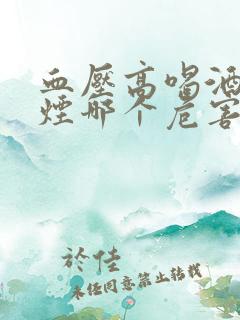 血壓高喝酒
煙那个危害
於佳
未经同意禁止转载